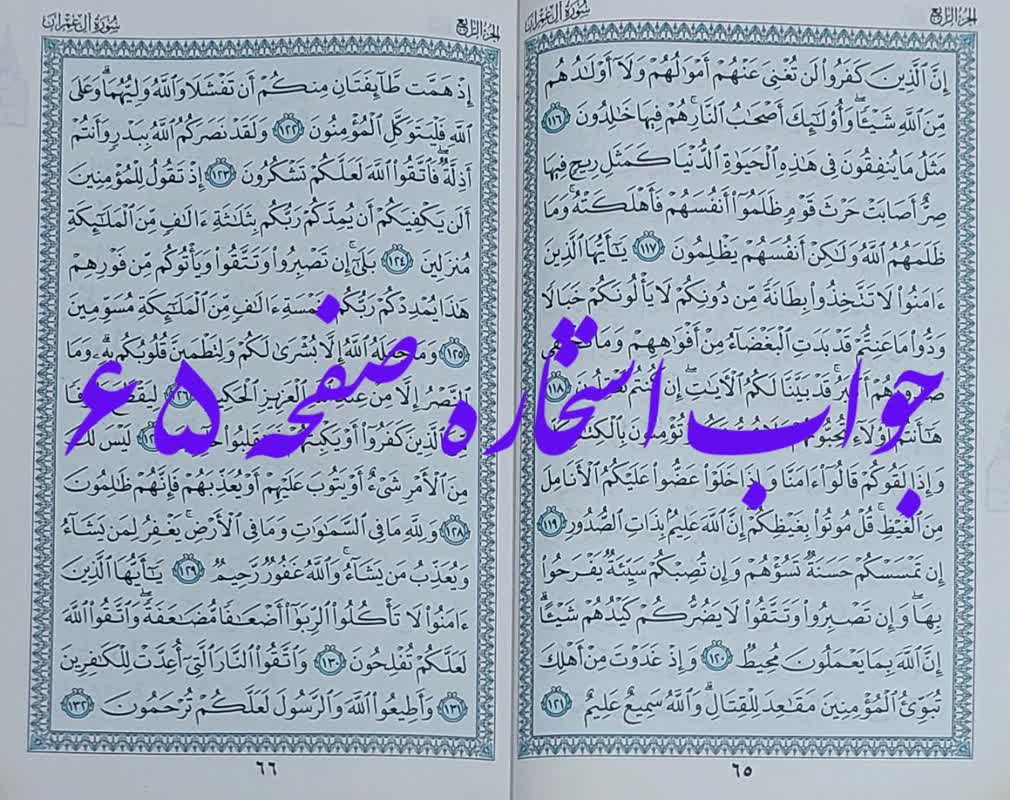 الجزء الرابع
سورة آل عمران
إِنَّ ٱلَّذِينَ كَفَرُوا۟ لَن تُغْنِىَ عَنْهُمْ أَمْوَٰلُهُمْ وَلَآ أَوْلَٰدُهُم
مِّنَ ٱللَّهِ شَيْـًٔا ۖ وَأُو۟لَٰٓئِكَ أَصْحَٰبُ ٱلنَّارِ ۚ هُمْ فِيهَا خَٰلِدُونَ ١١٦
مَثَلُ مَا يُنفِقُونَ فِى هَٰذِهِ ٱلْحَيَوٰةِ ٱلدُّنْيَا كَمَثَلِ رِيحٍ فِيهَا
صِرٌّ أَصَابَتْ حَرْثَ قَوْمٍ ظَلَمُوٓا۟ أَنفُسَهُمْ فَأَهْلَكَتْهُ ۚ وَمَا
ظَلَمَهُمُ ٱللَّهُ وَلَٰكِنْ أَنفُسَهُمْ يَظْلِمُونَ ١١٧ يَٰٓأَيُّهَا ٱلَّذِينَ
ءَامَنُوا۟ لَا تَتَّخِذُوا۟ بِطَانَةً مِّن دُونِكُمْ لَا يَأْلُونَكُمْ خَبَالًا
وَدُّوا۟ مَا عَنِتُّمْ قَدْ بَدَتِ ٱلْبَغْضَآءُ مِنْ أَفْوَٰهِهِمْ وَمَا
قَدْ بَيَّنَّا لَكُمُ ٱلْـَٔايَٰتِ ۖ إِن ١١٨
هَٰٓأَنتُمْ أُو۟لَآءِ
وَإِذَا لَقُوكُمْ قَالُوٓا۟ ءَامَنَّا وَإِذَا خَلَوْا۟ عَضُّوا۟ عَلَيْكُمُ ٱلْأَنَامِلَ
مِنَ ٱلْغَيْظِ ۚ قُلْ مُوتُوا۟ بِغَيْظِكُمْ ۗ إِنَّ ٱللَّهَ عَلِيمٌۢ بِذَاتِ ٱلصُّدُورِ ١١٩
إِن تَمْسَسْكُمْ حَسَنَةٌ تَسُؤْهُمْ وَإِن تُصِبْكُمْ سَيِّئَةٌ يَفْرَحُوا۟
بِهَا ۖ وَإِن تَصْبِرُوا۟ وَتَتَّقُوا۟ لَا يَضُرُّكُمْ كَيْدُهُمْ شَيْـًٔا ۗ
إِنَّ ٱللَّهَ بِمَا يَعْمَلُونَ مُحِيطٌ ١٢٠ وَإِذْ غَدَوْتَ مِنْ أَهْلِكَ
تُبَوِّئُ ٱلْمُؤْمِنِينَ مَقَٰعِدَ لِلْقِتَالِ ۗ وَٱللَّهُ سَمِيعٌ عَلِيمٌ ١٢١
٦٥
الجزء الرابع
سورة آل عمران
إِذْ هَمَّت طَّآئِفَتَانِ مِنكُمْ أَن تَفْشَلَا وَٱللَّهُ وَلِيُّهُمَا ۗ وَعَلَى
ٱللَّهِ فَلْيَتَوَكَّلِ ٱلْمُؤْمِنُونَ ١٢٢ وَلَقَدْ نَصَرَكُمُ ٱللَّهُ بِبَدْرٍ وَأَنتُمْ
أَذِلَّةٌ ۖ فَٱتَّقُوا۟ ٱللَّهَ لَعَلَّكُمْ تَشْكُرُونَ ١٢٣ إِذْ تَقُولُ لِلْمُؤْمِنِينَ
أَلَن يَكْفِيَكُمْ أَن يُمِدَّكُمْ رَبُّكُم بِثَلَٰثَةِ ءَالَٰفٍ مِّنَ ٱلْمَلَٰٓئِكَةِ
مُنزَلِينَ ١٢٤ بَلَىٰٓ ۚ إِن تَصْبِرُوا۟ وَتَتَّقُوا۟ وَيَأْتُوكُم مِّن فَوْرِهِمْ
هَٰذَا يُمْدِدْكُمْ رَبُّكُم بِخَمْسَةِ ءَالَٰفٍ مِّنَ ٱلْمَلَٰٓئِكَةِ مُسَوِّمِينَ
١٢٥ وَمَا جَعَلَهُ ٱللَّهُ إِلَّا بُشْرَىٰ لَكُمْ وَلِتَطْمَئِنَّ قُلُوبُكُم بِهِۦ ۗ وَمَا
ٱلنَّصْرُ إِلَّا مِنْ ٱلْعَزِيزِ ٱلْحَكِيمِ ١٢٦
ٱلَّذِينَ كَفَرُوٓا۟ أَوْ ١٢٧ لَيْسَ لَكَ
مِنَ ٱلْأَمْرِ شَىْءٌ أَوْ يَتُوبَ عَلَيْهِمْ أَوْ يُعَذِّبَهُمْ فَإِنَّهُمْ ظَٰلِمُونَ
١٢٨ وَلِلَّهِ مَا فِى ٱلسَّمَٰوَٰتِ وَمَا فِى ٱلْأَرْضِ ۚ يَغْفِرُ لِمَن يَشَآءُ
وَيُعَذِّبُ مَن يَشَآءُ ۚ وَٱللَّهُ غَفُورٌ رَّحِيمٌ ١٢٩ يَٰٓأَيُّهَا ٱلَّذِينَ
ءَامَنُوا۟ لَا تَأْكُلُوا۟ ٱلرِّبَوٰٓا۟ أَضْعَٰفًا مُّضَٰعَفَةً ۖ وَٱتَّقُوا۟ ٱللَّهَ
لَعَلَّكُمْ تُفْلِحُونَ ١٣٠ وَٱتَّقُوا۟ ٱلنَّارَ ٱلَّتِىٓ أُعِدَّتْ لِلْكَٰفِرِينَ
١٣١ وَأَطِيعُوا۟ ٱللَّهَ وَٱلرَّسُولَ لَعَلَّكُمْ تُرْحَمُونَ ١٣٢
٦٦
جواب استخاره صفحه ۶۵